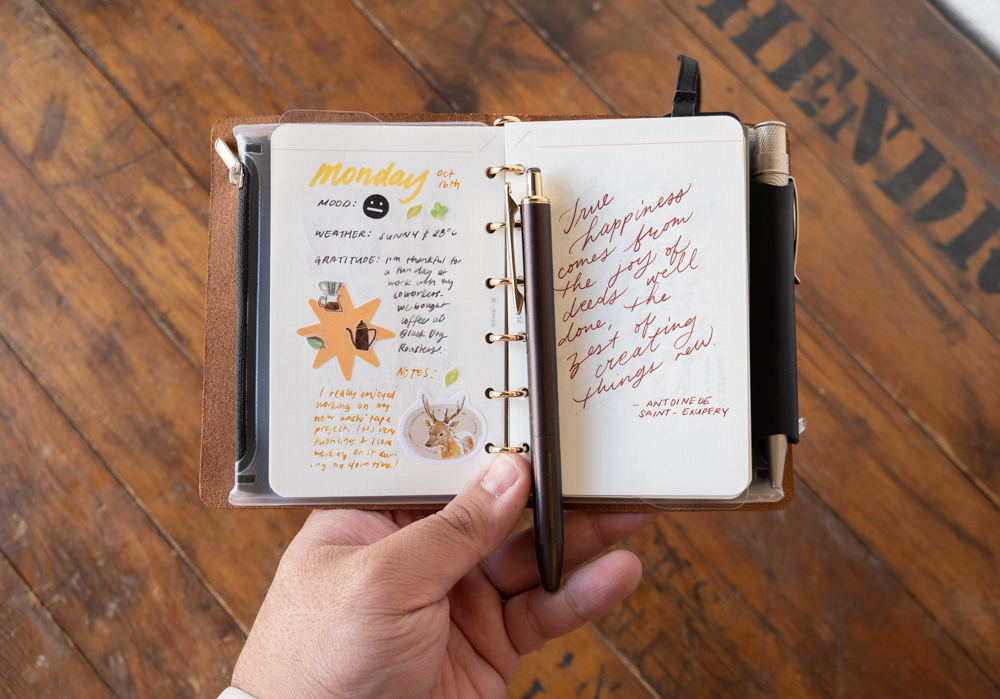 Monday
Oct
16th
MOOD:
WEATHER: SUNNY & 28°C
GRATITUDE: I'm thankful for
a fun day at
work with my
coworkers.
We bought
coffee at
Black Dog
Roasters.
NOTES:
I really enjoyed
working on my
new washi tape
project. It's very
& I love
working on it dur-
ing my downtime!
True
happiness
comes from
the joy of
deeds well
done, the
zest of
creating
things new.
- ANTOINE DE
SAINT-EXUPERY
HENDR